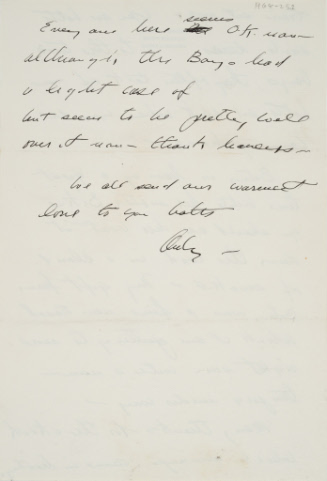 Every one here seems O.K. now
although the Boys had
a light case of
but seem to be pretty well
over it now – thanks heavens –
We all send our warmest
love to you both